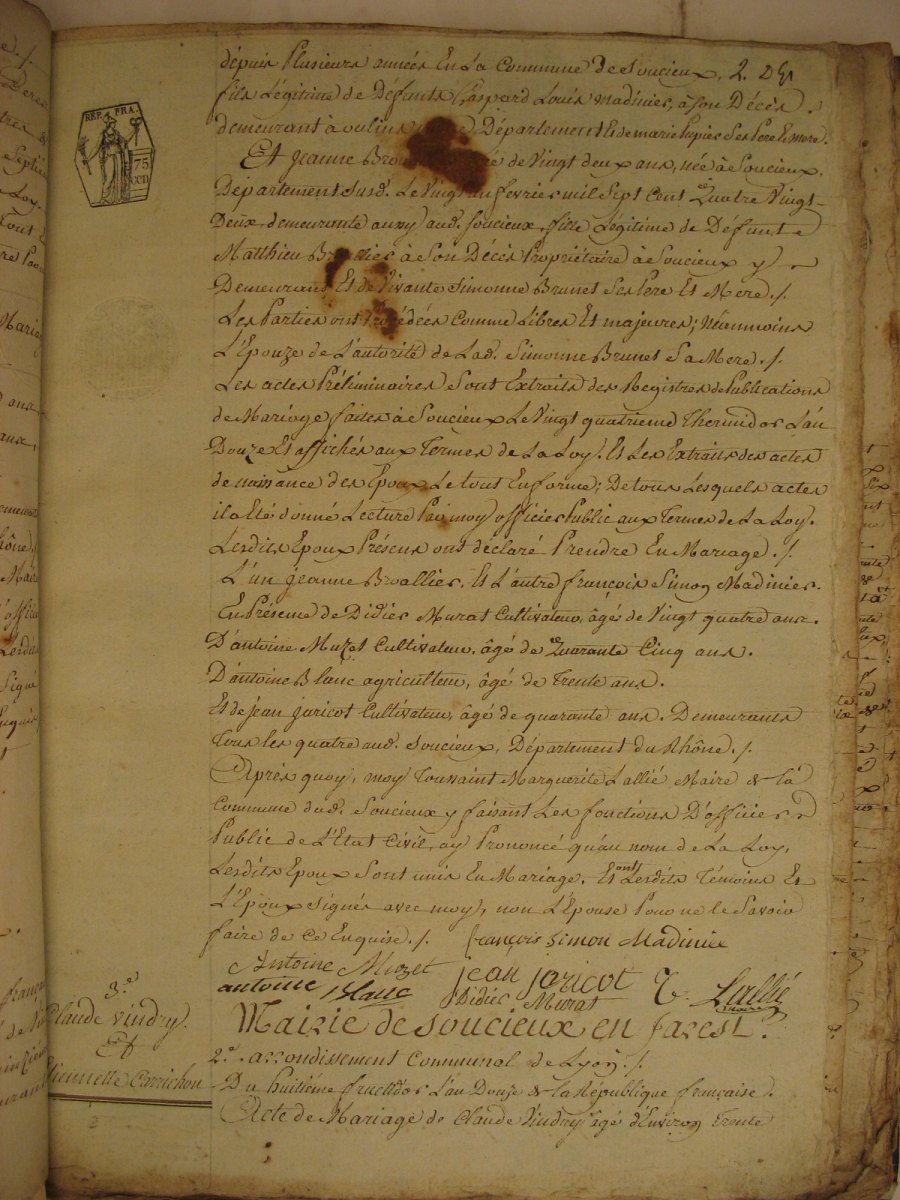 REP. FRA.
75
CEN
dépuis Plusieurs années En La Commune de Soucieux,
fils Légitime de Défunts Gaspard Louis Madinier, à Son Décès
demeurant à oulins Département Et de marie Pupier Ses Pere Et Mere.
Et Jeanne de Vingt deux ans, née à Soucieux,
Département Susd. Le Vingt un fevrier mil Sept Cent Quatre Vingt
Deux, demeurante aussy aud. Soucieux, fille Légitime de Défunt
Matthieu à Son Décès Propriétaire à Soucieux y
Demeurans Et de Vivante Simonne Brunet Ses Pere Et Mere ./.
Les Parties ont Procédées Comme Libres Et majeures; Néanmoins
L'Epouze de L'autorité de Lad. Simonne Brunet Sa Mere ./.
Les actes Préliminaires Sont Extraits des Registres de Publications
de Mariage faites à Soucieux Le Vingt quatrieme Thermidor L'an
Douze Et affichés aux Termes de La Loy; Et Les Extraits des actes
de naissance des Epoux Le tout En forme; De tous Lesquels actes
il a Eté donné Lecture Par moy officier Public aux Termes de La Loy.
Lesdits Epoux Présens ont déclaré Prendre En Mariage ./.
L'un jeanne Broallier, Et L'autre françois Simon Madinier.
En Présence de Didier Murat Cultivateur, âgé de Vingt quatre ans.
D'antoine Muzet Cultivateur, âgé de Quarante Cinq ans.
D'antoine Blanc agriculteur, âgé de Trente ans.
Et de jean jaricot Cultivateur, âgé de quarante ans. Demeurants
Tous les quatre aud. Soucieux, Département du Rhône ./.
Après quoy, moy Toussaint Marguerite Lallié Maire de la
Commune dud. Soucieux y faisant Les fonctions D'officier
Public de L'Etat Civil, ay Prononcé qu'au nom de La Loy,
Lesdits Epoux Sont unis En Mariage. Et ont Lesdits Témoins Et
L'Epoux Signés avec moy, non L'Epouse Pour ne le Savoir
faire de Ce Enquise ./. françois Simon Madinier
Antoine Muzet jean jaricot T. Lallié
antoine Blanc Didier Murat maire
3.e
Claude Vindry.
Et
Mairie de Soucieux en Jarest.
2.e arrondissement Communal de Lyon ./.
Du huitième fructidor L'an Douze de la République française.
Acte de Mariage de Claude Vindry âgé d'Environ Trente